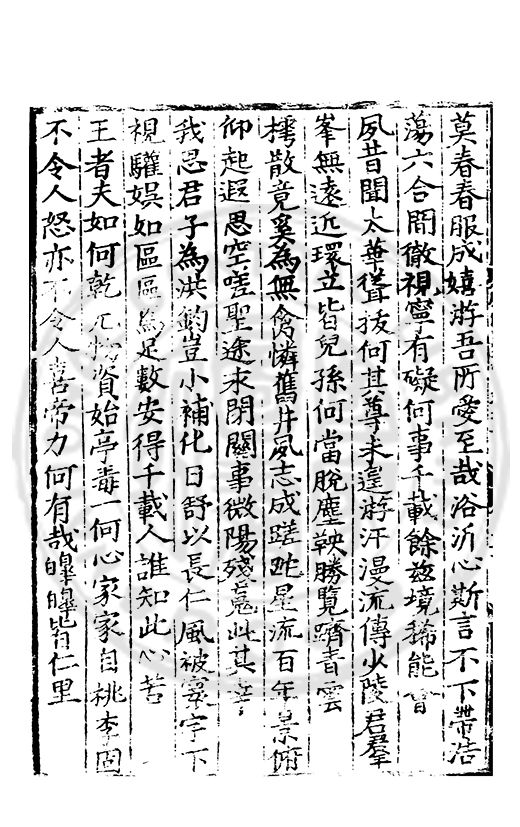 莫春春服成嬉游吾所愛至哉浴沂心斯言不下帶浩
蕩六合間徹視寧有礙何事千載餘茲境稀能會
夙昔聞太華聳拔何其尊未遑游汗漫流傳少陵君羣
峯無遠近環立皆兒孫何當脫塵鞅勝覽躋青雲
樗散竟奚為無禽憐舊井夙志成蹉跎星流百年景俯
仰起遐思空嗟聖途永閉關事微陽殘其
我思君子為洪鈞豈小補化日舒以長仁風被寰宇下
視驩娛如區區為足數安得千載人誰知此心苦
王者夫如何乾元物資始亭毒一何心家家自桃李固
不令人怒亦不令人喜帝力何有哉皞皞皆仁里